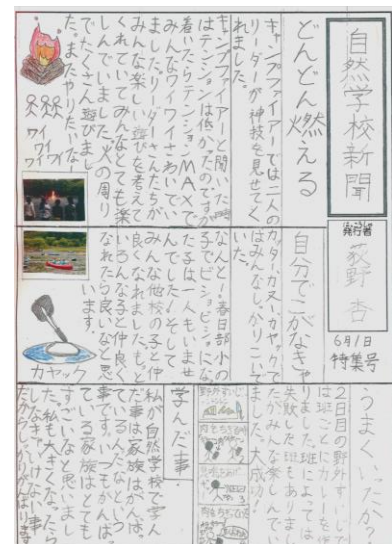 自然学校新聞
発行者
荻野 杏
6月1日
特集号
どんどん燃える
キャンプファイアーでは二人の
リーダーが神技を見せてく
れました。
キャンプファイアーと聞いた時
はテンションは低かったのですが
着いたらテンションMAXで
みんなワイワイさわいでい
ました。リーダーさんたちが
みんな楽しい遊びを考えて
くれていてみんなとても楽
しんでいました。火の周り
でたくさん遊びまし
た。またやりたいな
ワイ
ワイ
ワイ
自分でこがなきゃ
カッター、カヌー、カヤックで
はみんなしっかりこいで
いた。
なんと!春日部小の
子でビショビショにな
った子は一人もいませ
んでした!そして
みんな他校の子と仲
良くなれました。もっと
いろんな子と仲良く
なれたら良いなと思
います。
カヤック
うまくいったか?
2日目の野外すいじで
は班ごとにカレーを作
りました。班によっては
失敗した班もありまし
たがみんな楽しんでい
ました。大成功!
野外すいじ
学んだ事
私が自然学校で学ん
だ事は家族はがんば
っている人だなという
事です。いつもがんば
っている家族はとても
すごいなと思いまし
た。私も大きくなったら
しなきゃいけない事
だからしっかりがんばります